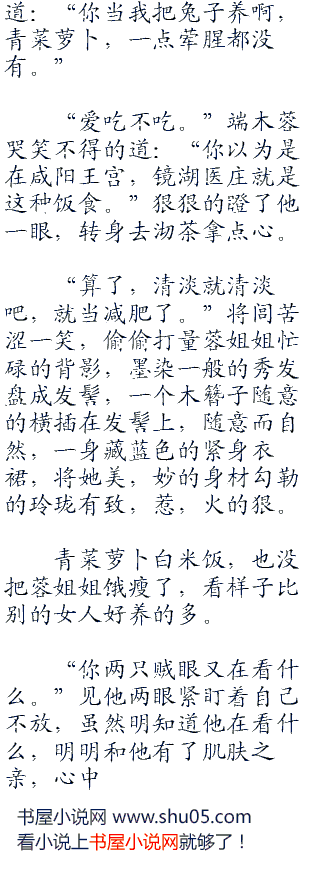 道：“你当我把兔子养啊，
青菜萝卜，一点荤腥都没
有。”
“爱吃不吃。”端木蓉
哭笑不得的道：“你以为是
在咸阳王宫，镜湖医庄就是
这种饭食。”狠狠的蹬了他
一眼，转身去沏茶拿点心。
“算了，清淡就清淡
吧，就当减肥了。”将闾苦
涩一笑，偷偷打量蓉姐姐忙
碌的背影，墨染一般的秀发
盘成发髻，一个木簪子随意
的横插在发髻上，随意而自
然，一身藏蓝色的紧身衣
裙，将她美，妙的身材勾勒
的玲珑有致，惹，火的狠。
青菜萝卜白米饭，也没
把蓉姐姐饿瘦了，看样子比
别的女人好养的多。
“你两只贼眼又在看什
么。”见他两眼紧盯着自己
不放，虽然明知道他在看什
么，明明和他有了肌肤之
亲，心中
书屋小说网 www.shu05.com
看小说上书屋小说网就够了！